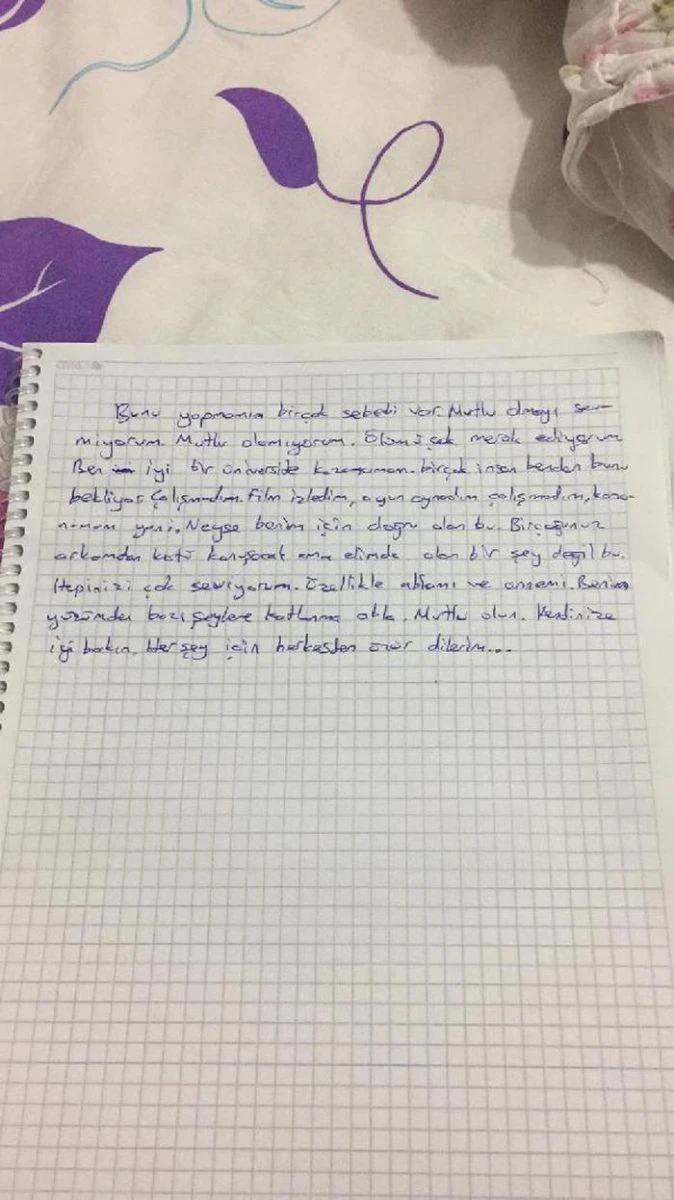 Bunu yapmamın birçok sebebi var. Mutlu olmayı sev-
miyorum. Mutlu olamıyorum. Ölümü çok merak ediyorum
Ben iyi bir üniverside kazanamam. birçok insan benden bunu
bekliyor. Çalışmadım. Film izledim, oyun oynadım çalışmadım, kaza-
namam yani. Neyse benim için doğru olan bu. Birçoğunuz
arkamdan kötü konuşacak ama elimde olan bir şey değil bu.
Hepinizi çok seviyorum. Özellikle ablamı ve annemi. Benim
yüzümden bazı şeylere katlanma abla. Mutlu olun. Kendinize
iyi bakın. Her şey için herkesten özür dilerim...